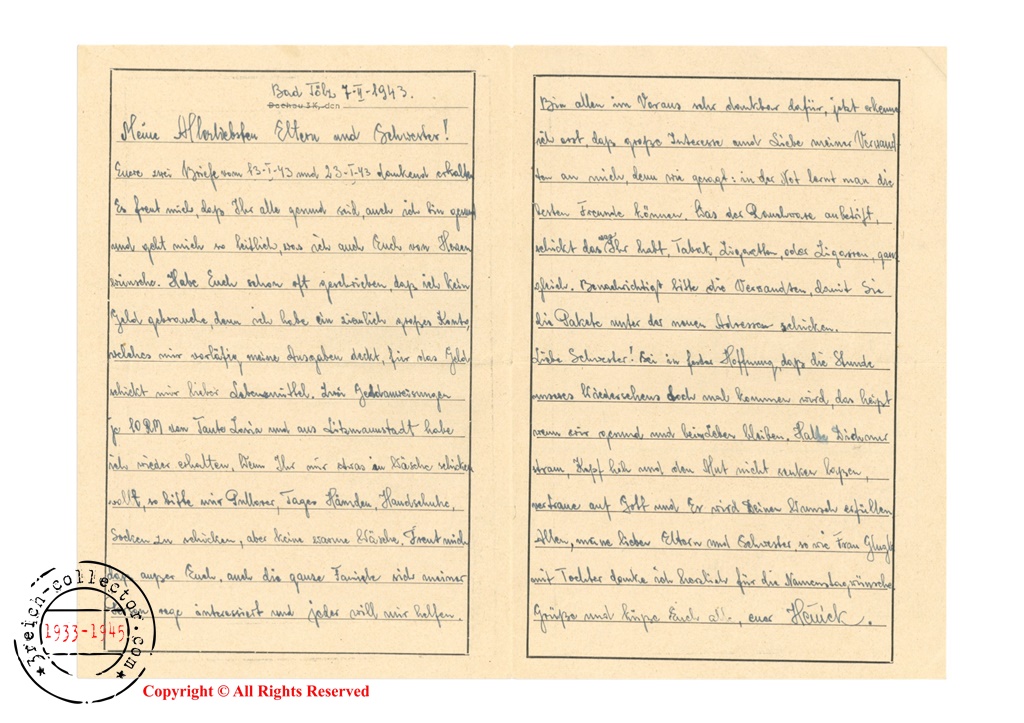 Bad Tölz 7-II-1943.
Dachau 3K, den
Meine Allerliebsten Eltern und Schwester!
Euere zwei Briefe vom 13-I-43 und 23-I-43 dankend erhalten
Es freut mich, daß Ihr alle gesund seid, auch ich bin gesund
und geht mich so leidlich, was ich auch Euch von Herzen
wünsche. Habe Euch schon oft geschrieben, daß ich kein
Geld gebrauche, denn ich habe ein ziemlich großes Konto,
welches mir vorläufig meine Ausgaben deckt, für das Geld
schickt mir lieber Lebensmittel. Zwei Geldanweisungen
je 10 RM von Tante und aus Litzmannstadt habe
ich wieder erhalten. Wenn Ihr mir etwas an Wäsche schicken
wollt, so bitte mir Pullover, Tages Hämden, Handschuhe,
Socken zu schicken, aber keine warme Wäsche. Freut mich
daß außer Euch, auch die ganze Familie sich meiner
rege interessiert und jeder will mir helfen.
Bin allen im Voraus sehr dankbar dafür, jetzt erkenne
ich erst, daß große Interesse und Liebe meiner Verwand
ten an mich, denn wie gesagt: in der Not lernt man die
besten Freunde können. Was der Rauchware anbetrift,
schickt das was Ihr habt, Tabak, Zigaretten, oder Zigarren, ganz
gleich. Benachrichtigt bitte die Verwandten, damit Sie
die Pakete unter der neuen Adressen schicken.
Liebe Schwester! Sei in fester Hoffnung, daß die Stunde
unseres Wiedersehens doch mal kommen wird, das heißt
wenn wir gesund und beim Leben bleiben. Halte Dich nur
stram, Kopf hoh und den Mut nicht senken lassen,
vertraue auf Gott und Er wird Deinen Wunsch erfüllen
Allen, meine lieben Eltern und Schwester, so wie Frau
mit Tochter danke ich herzlich für die Namenstagwünsche
Grüße und küße Euch alle, euer Heniek.
3reich-collector.com
1933-1945
Copyright © All Rights Reserved